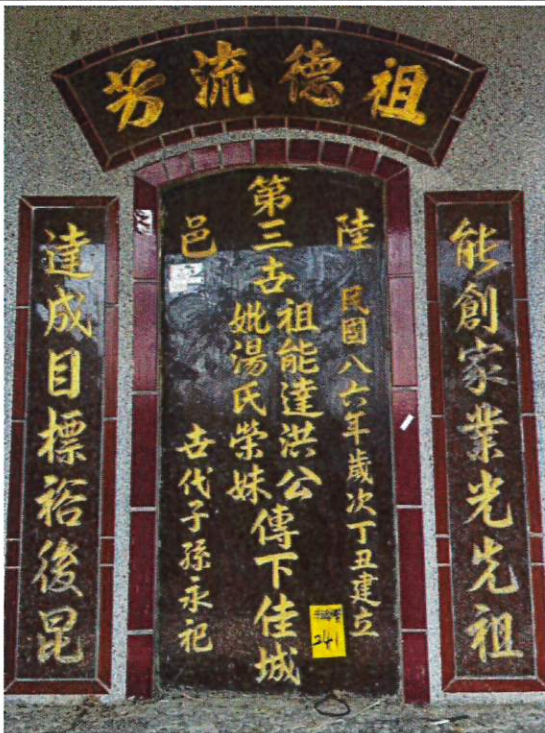 祖德流芳
能創家業光先祖
陸
民國八六年歲次丁丑建立
第三世
祖能達洪公
妣湯氏榮妹
傳下佳城
邑
世代子孫永祀
達成目標裕後昆
241